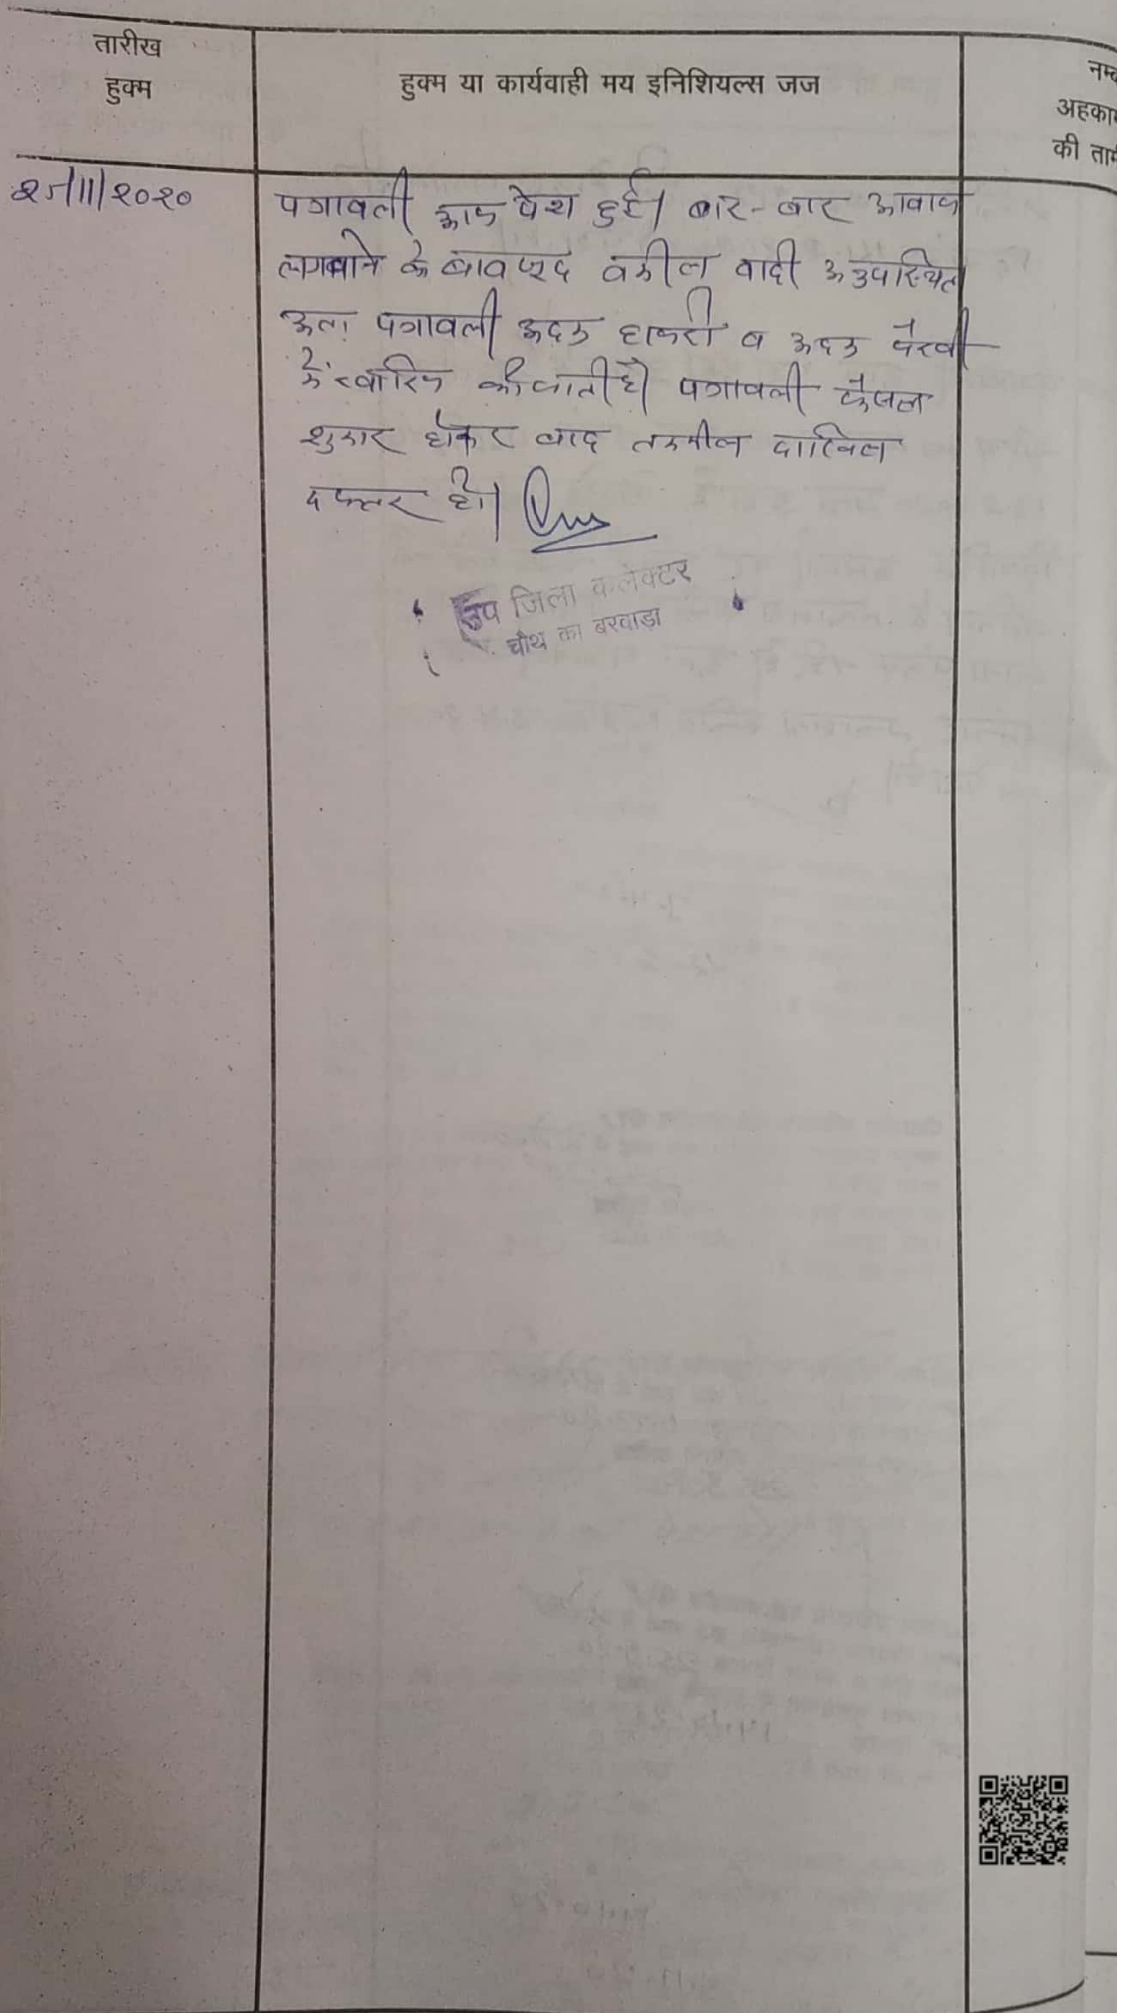 तारीख
हुक्म
हुक्म या कार्यवाही मय इनिशियल्स जज
नम्ब
अहकाम
की ताम
२५/11/२०२०
पत्रावली आज पेश हुई। बार-बार आवाज
लगवाने के बावजूद वकील वादी अनुपस्थित
अतः पत्रावली अदम हाजरी व अदम पैरवी
में खारिज की जाती है। पत्रावली फैसल
शुमार होकर बाद तकमील दाखिल
दफ्तर हो।
उप जिला कलेक्टर
चौथ का बरवाड़ा